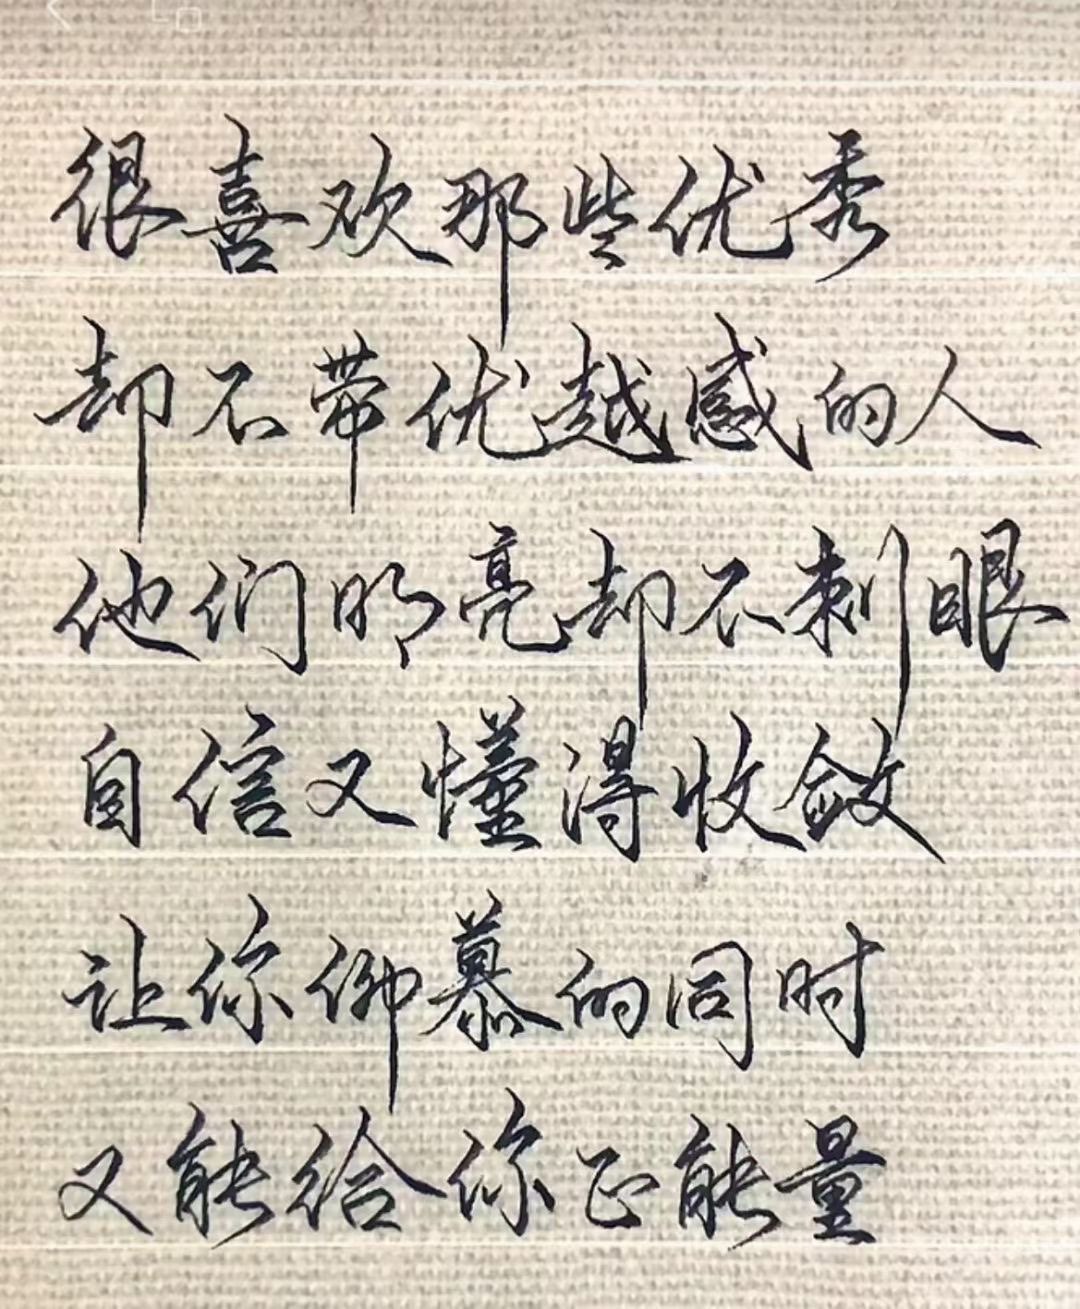 很喜欢那些优秀
却不带优越感的人
他们明亮却不刺眼
自信又懂得收敛
让你仰慕的同时
又能给你正能量